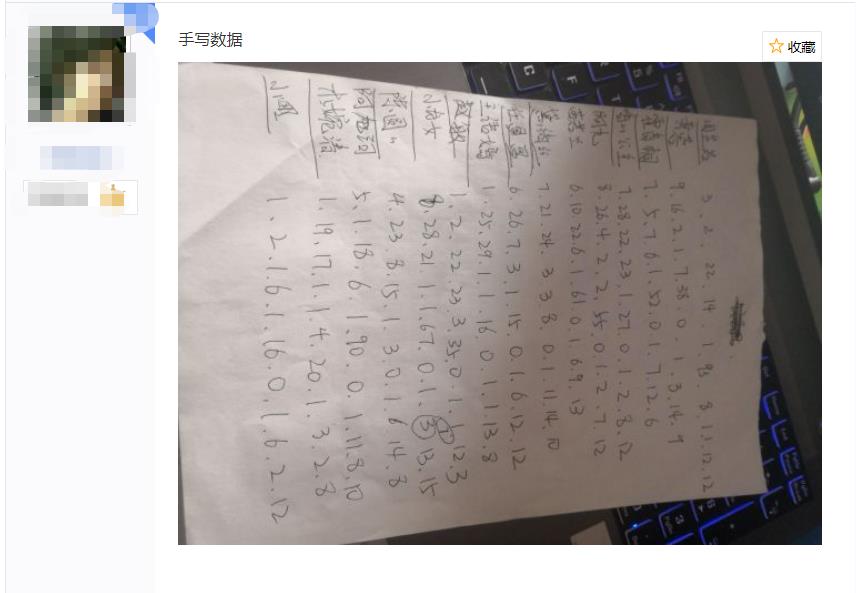 手写数据
收藏
周芷若
黄蓉 9.16.2.1.7.58.0.1.3.14.9
7.5.7.6.1.52.0.1.7.12.6
公主 7.28.22.23.1.27.0.1.2.8.12
8.26.4.2.2.55.0.1.2.7.12
6.10.22.6.1.61.0.1.6.9.13
7.21.24.3.3.8.0.1.11.14.10
任盈盈 6.26.7.3.1.15.0.1.6.12.12
王语嫣 1.25.29.1.1.16.0.1.1.13.8
赵敏 1.2.22.23.3.35.0.1.1.12.3
小龙女 8.28.21.1.1.67.0.1.3.13.15
4.23.8.15.1.3.0.1.6.14.8
5.1.18.6.1.90.0.1.11.8.10
木婉清 1.19.17.1.1.4.20.1.3.2.8
小昭 1.2.1.6.1.16.0.1.6.2.12